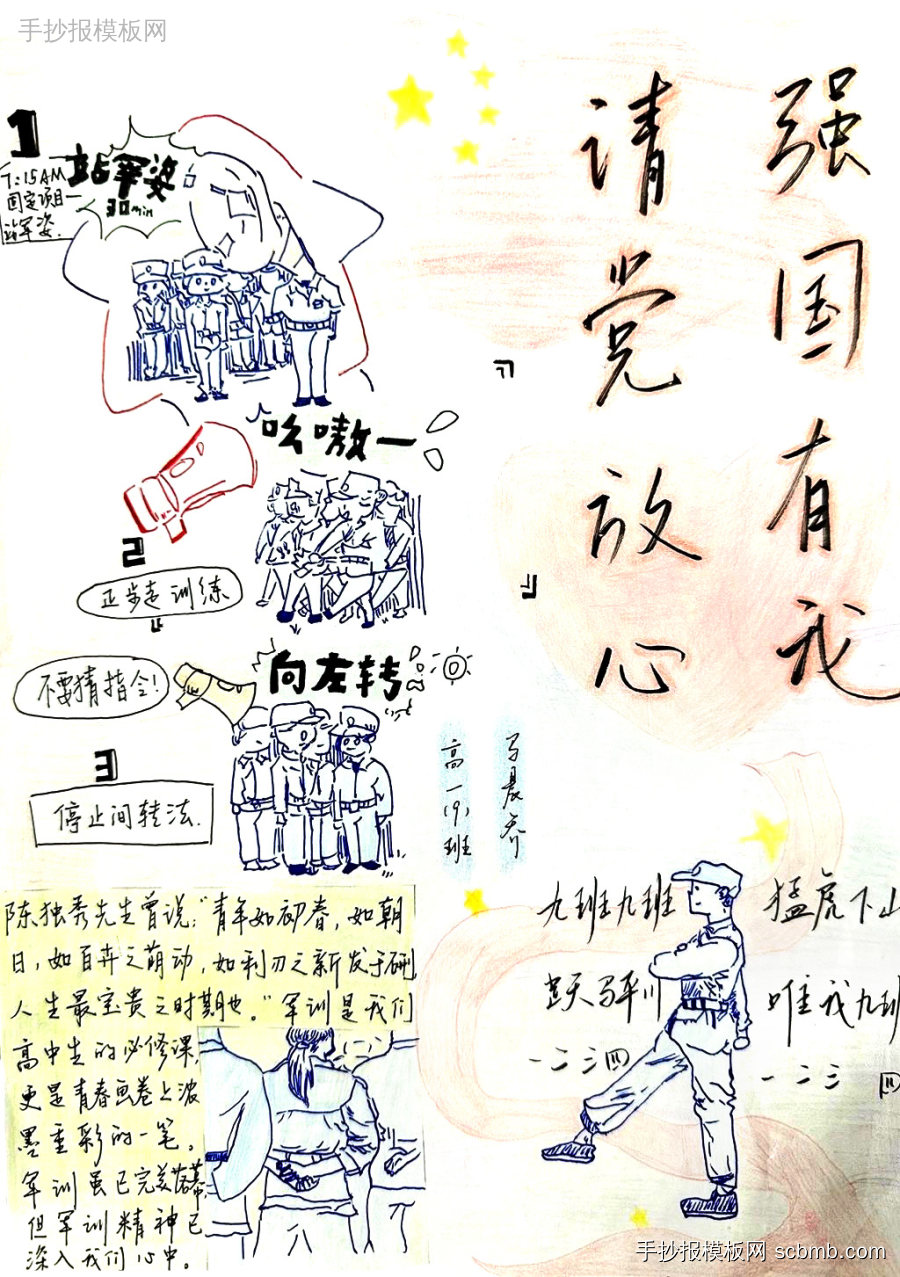 手抄报模板网
强国有我
请党放心
1
站军姿
30min
7:15AM
固定项目一
站军姿.
吆嗷一
2
正步走训练
向左转
不要猜指令!
3
停止间转法.
高一(9)班
马晨乔
陈独秀先生曾说:“青年如初春,如朝
日,如百卉之萌动,如利刃之新发于硎,
人生最宝贵之时期也。”军训是我们
高中生的必修课,
更是青春画卷上浓
墨重彩的一笔。
军训虽已完美落幕,
但军训精神已
深入我们心中。
九班九班
猛虎下山
一二三四
唯我九班
一二三四
手抄报模板网 scbmb.com